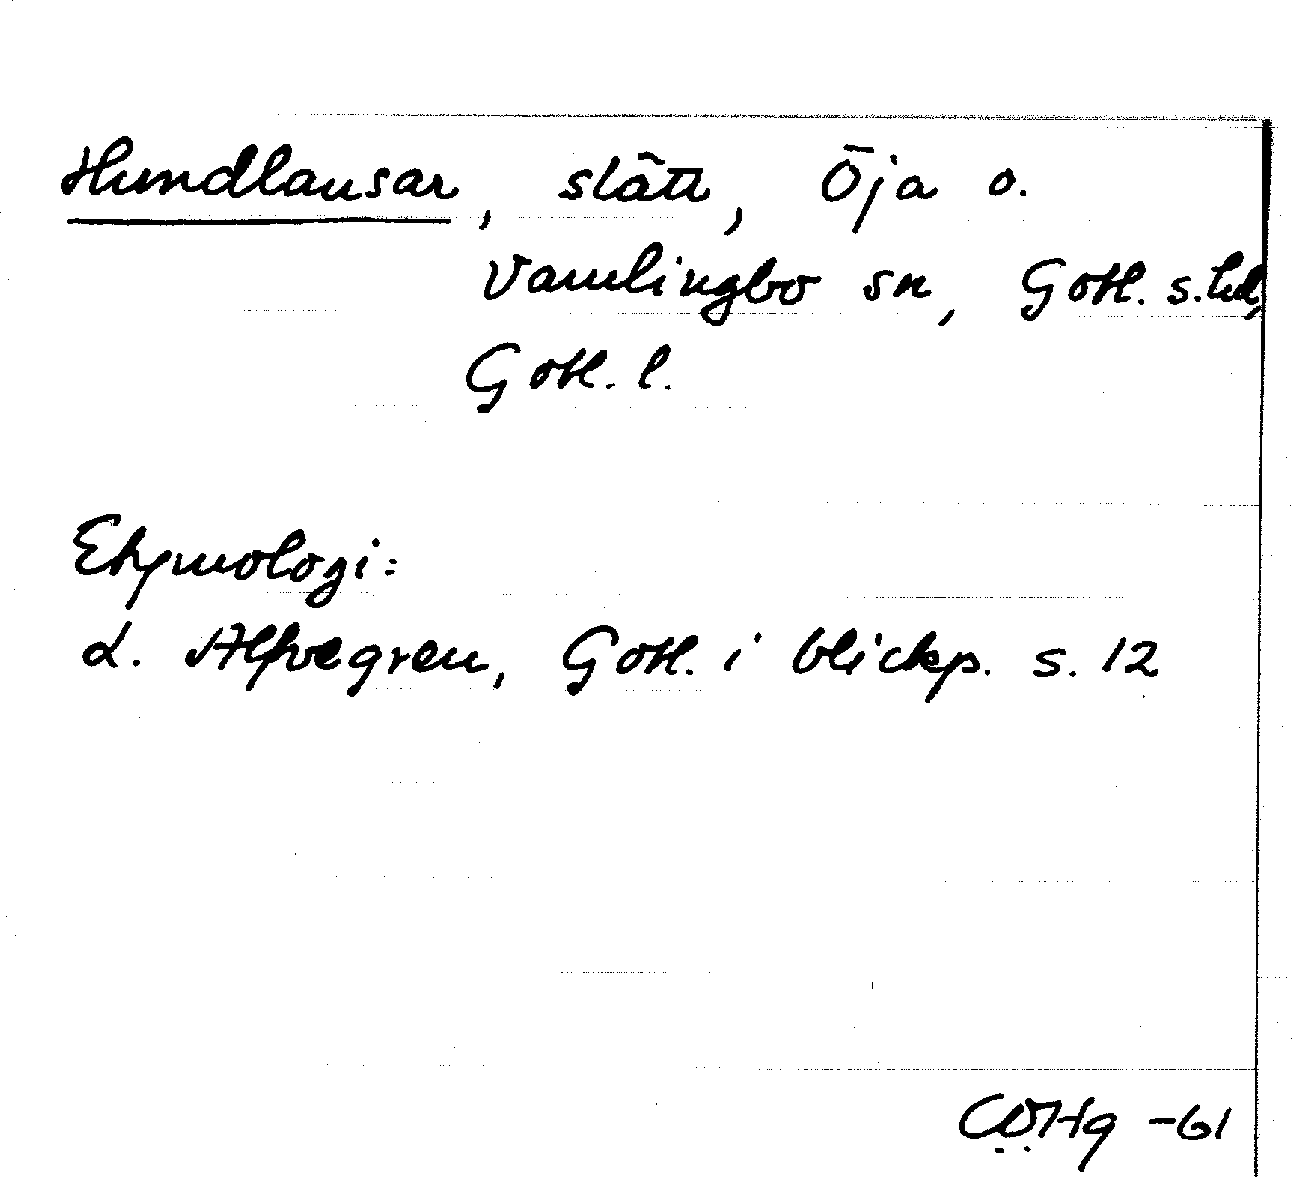 Hundlausar, slätt, Öja o.
Vamlingbo sn, Gotl. s. hd,
Gotl. l.
Etymologi:
L. Alfvegren, Gotl. i blickp. s. 12
-61